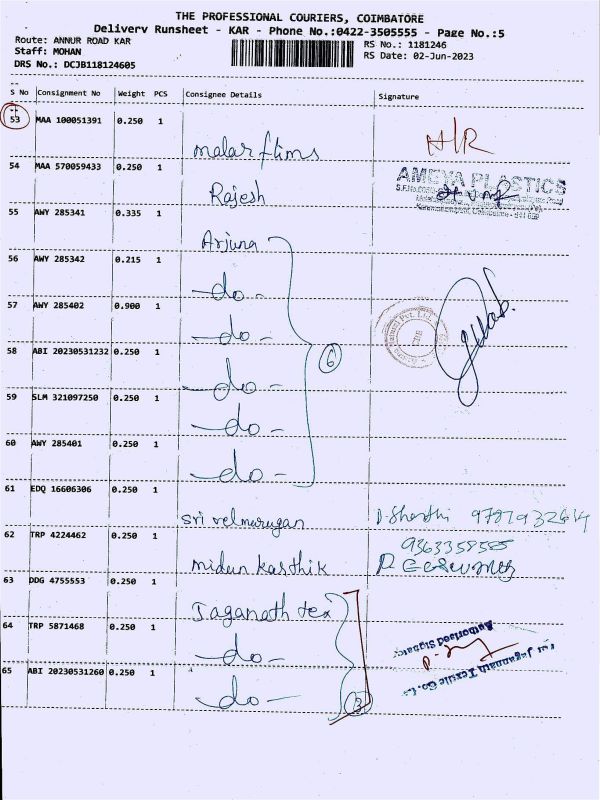 THE PROFESSIONAL COURIERS, COIMBATORE
Delivery Runsheet - KAR - Phone No.:0422-3505555 - Page No.:5
Route: ANNUR ROAD KAR
RS No.: 1181246
Staff: MOHAN
RS Date: 02-Jun-2023
DRS No.: DCJB118124605
S No Consignment No Weight PCS Consignee Details Signature
53 MAA 100051391 0.250 1
malar films N/R
54 MAA 570059433 0.250 1
Rajesh AMEYA PLASTICS
55 AWY 285341 0.335 1
Arjuna
56 AWY 285342 0.215 1
-do-
57 AWY 285402 0.900 1
-do-
58 ABI 20230531232 0.250 1
6
-do-
59 SLM 321097250 0.250 1
-do-
60 AWY 285401 0.250 1
-do-
61 EDQ 16606306 0.250 1
sri velmurugan D.Shanthi
62 TRP 4224462 0.250 1
9363358585
midun karthik
63 DDG 4755553 0.250 1
Jaganath tex
64 TRP 5871468 0.250 1
-do-
Authorised Signatory
For Jagannath Textile Co.
65 ABI 20230531260 0.250 1
-do-
3